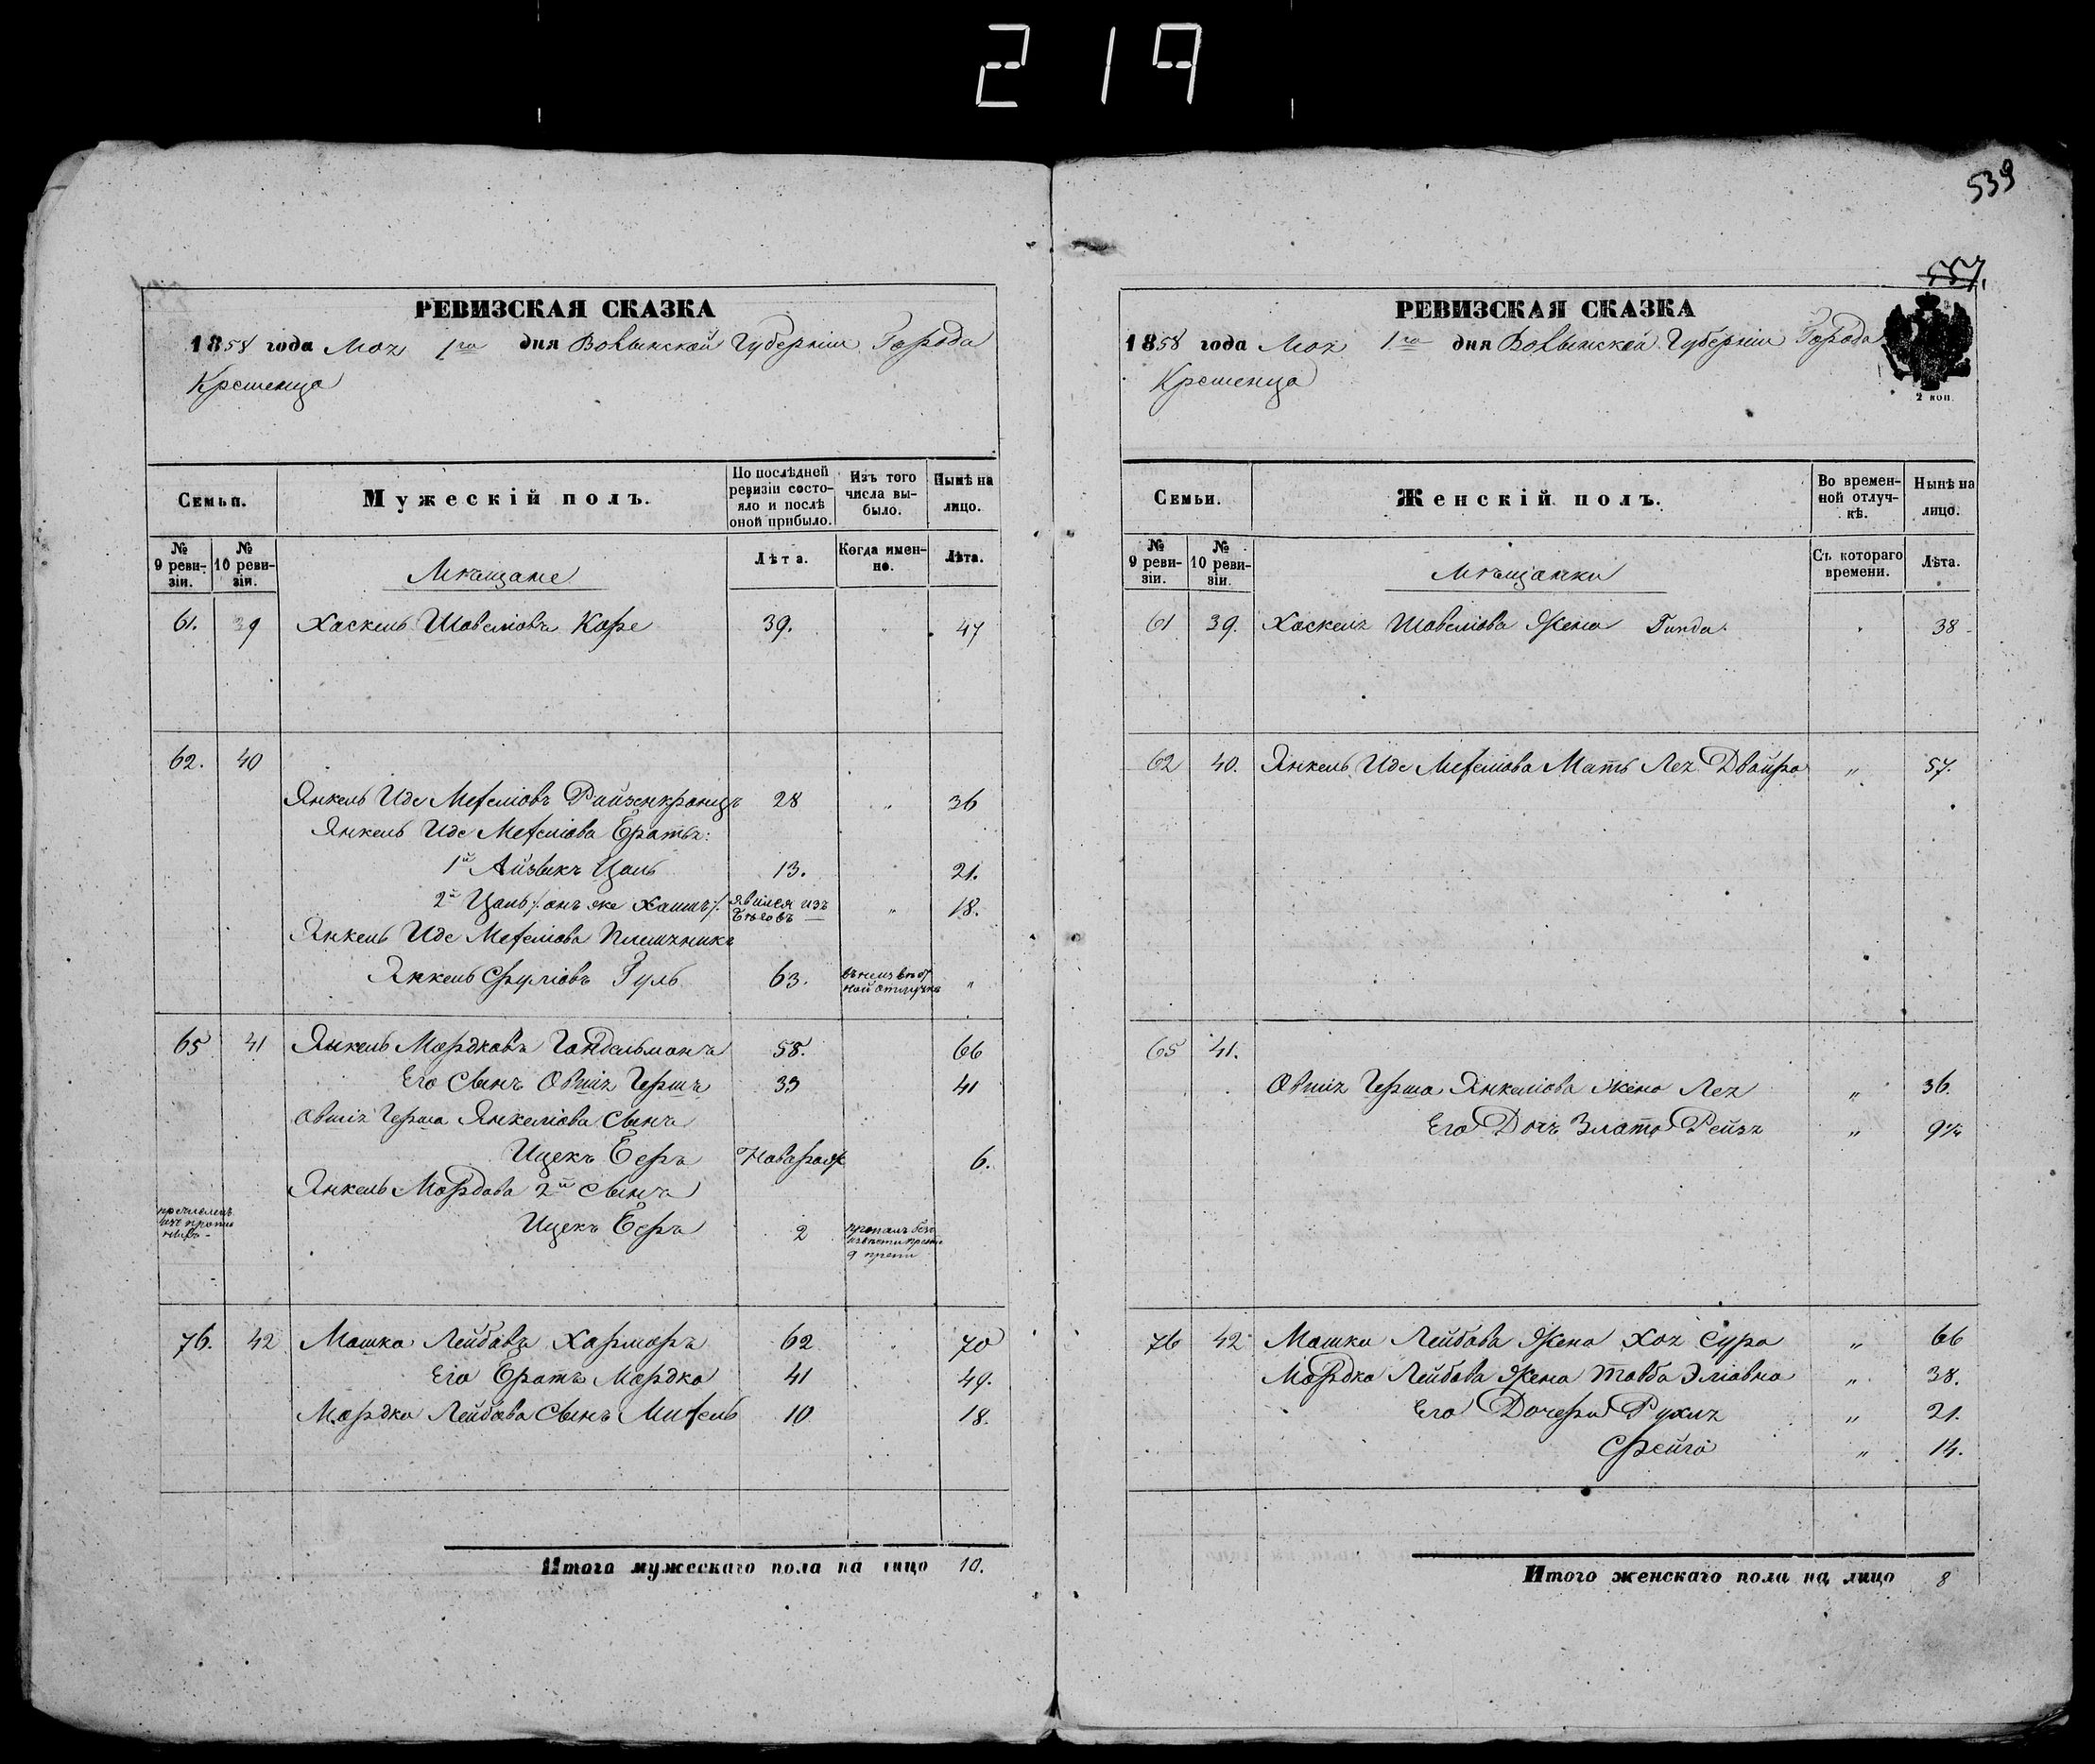 219
539
РЕВИЗСКАЯ СКАЗКА
1858 года Мая 1го дня Волынской Губерніи Города
Кременца
Семьи.
Мужескій полъ.
По послѣдней ревизіи состояло и послѣ оной прибыло.
Изъ того числа выбыло.
Нынѣ на лицо.
№ 9 ревизіи.
№ 10 ревизіи.
Мѣщане
Лѣта.
Когда именно.
Лѣта.
61. 39 Хаскель Шовеліовъ Каре 39. " 47
62. 40
Янкель Иде Мееліовъ Райзенкранцъ 28 " 36
Янкель Иде Мееліова Братья:
1й Айзыкъ Цаль 13. " 21.
2й Цаль /: онъ же Хаимъ :/ явился изъ бѣговъ " 18.
Янкель Иде Мееліова Племяникъ
Янкель Сруліовъ Гуль 63. въ неизвѣстной отлучкѣ "
65 41 Янкель Мордковъ Гандельманъ 58. 66
Его Сынъ Овшія Гершъ 33 41
Овшія Герша Янкеліова Сынъ
Ицекъ Беръ Новорож 6.
Янкель Мордова 2й Сынъ
Ицекъ Беръ 2
76. 42 Мошко Лейбовъ Харморъ 62 " 70
Его Братъ Мордко 41 49.
Мордки Лейбова Сынъ Михель 10 18.
Итого мужескаго пола на лицо 10.
557.
РЕВИЗСКАЯ СКАЗКА
1858 года Мая 1го дня Волынской Губерніи Города
Кременца
2 коп.
Семьи.
Женскій полъ.
Во временной отлучкѣ.
Нынѣ на лицо.
№ 9 ревизіи.
№ 10 ревизіи.
Мѣщанки
Съ котораго времени.
Лѣта.
61 39. Хаскеля Шовеліова Жена Гинда " 38
62 40. Янкель Иде Мееліова Мать Лея Двойра " 57.
65 41.
Овшія Герша Янкеліова Жена Лея " 36.
Его Дочь Злата Рейзя " 9½
76 42 Мошки Лейбова Жена Хая Сура " 66
Мордка Лейбова Жена Товба Эліовна " 38.
Его Дочери Рухля " 21.
Фейга " 14.
Итого женскаго пола на лицо 8